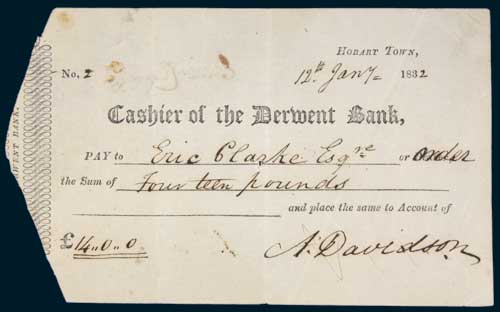 HOBART TOWN,
No. 2 12th Jany 1832
Cashier of the Derwent Bank,
PAY to Eric Clarke Esqre or order
the Sum of Fourteen pounds
and place the same to Account of
£14,,0,,0 A. Davidson
WENT BANK,